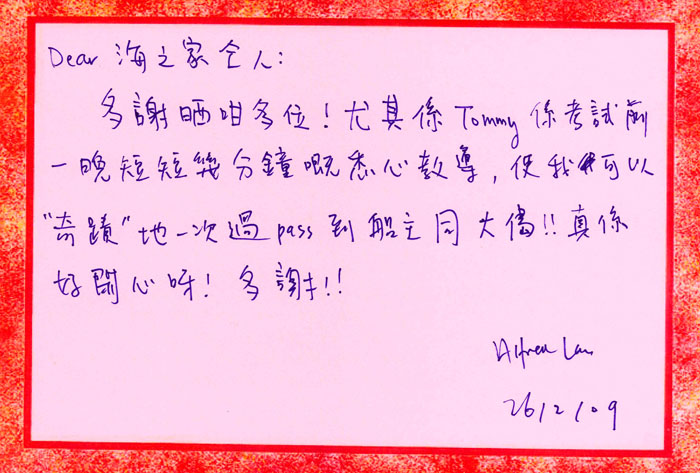 Dear 海之家仝人:
多謝晒咁多位!尤其係Tommy係考試前
一晚短短幾分鐘嘅悉心教導,使我可以
"奇蹟"地一次過pass到船主同大偈!!真係
好開心呀!多謝!!
Alfred Lau
26/2/09